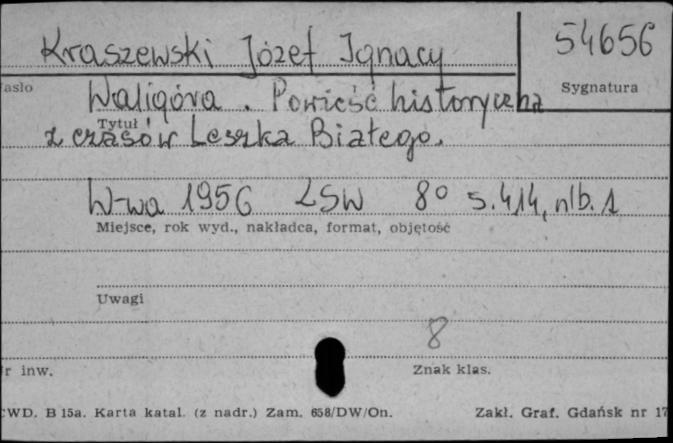 Kraszewski Józef Ignacy 54656
asło Waligóra. Powieść historyczna Sygnatura
Tytuł
z czasów Leszka Białego.
W-wa 1956 LSW 8° s. 414, nlb. 1
Miejsce, rok wyd., nakładca, format, objętość
Uwagi
8
r inw. Znak klas.
CWD. B 15a. Karta katal. (z nadr.) Zam. 658/DW/On. Zakł. Graf. Gdańsk nr 17